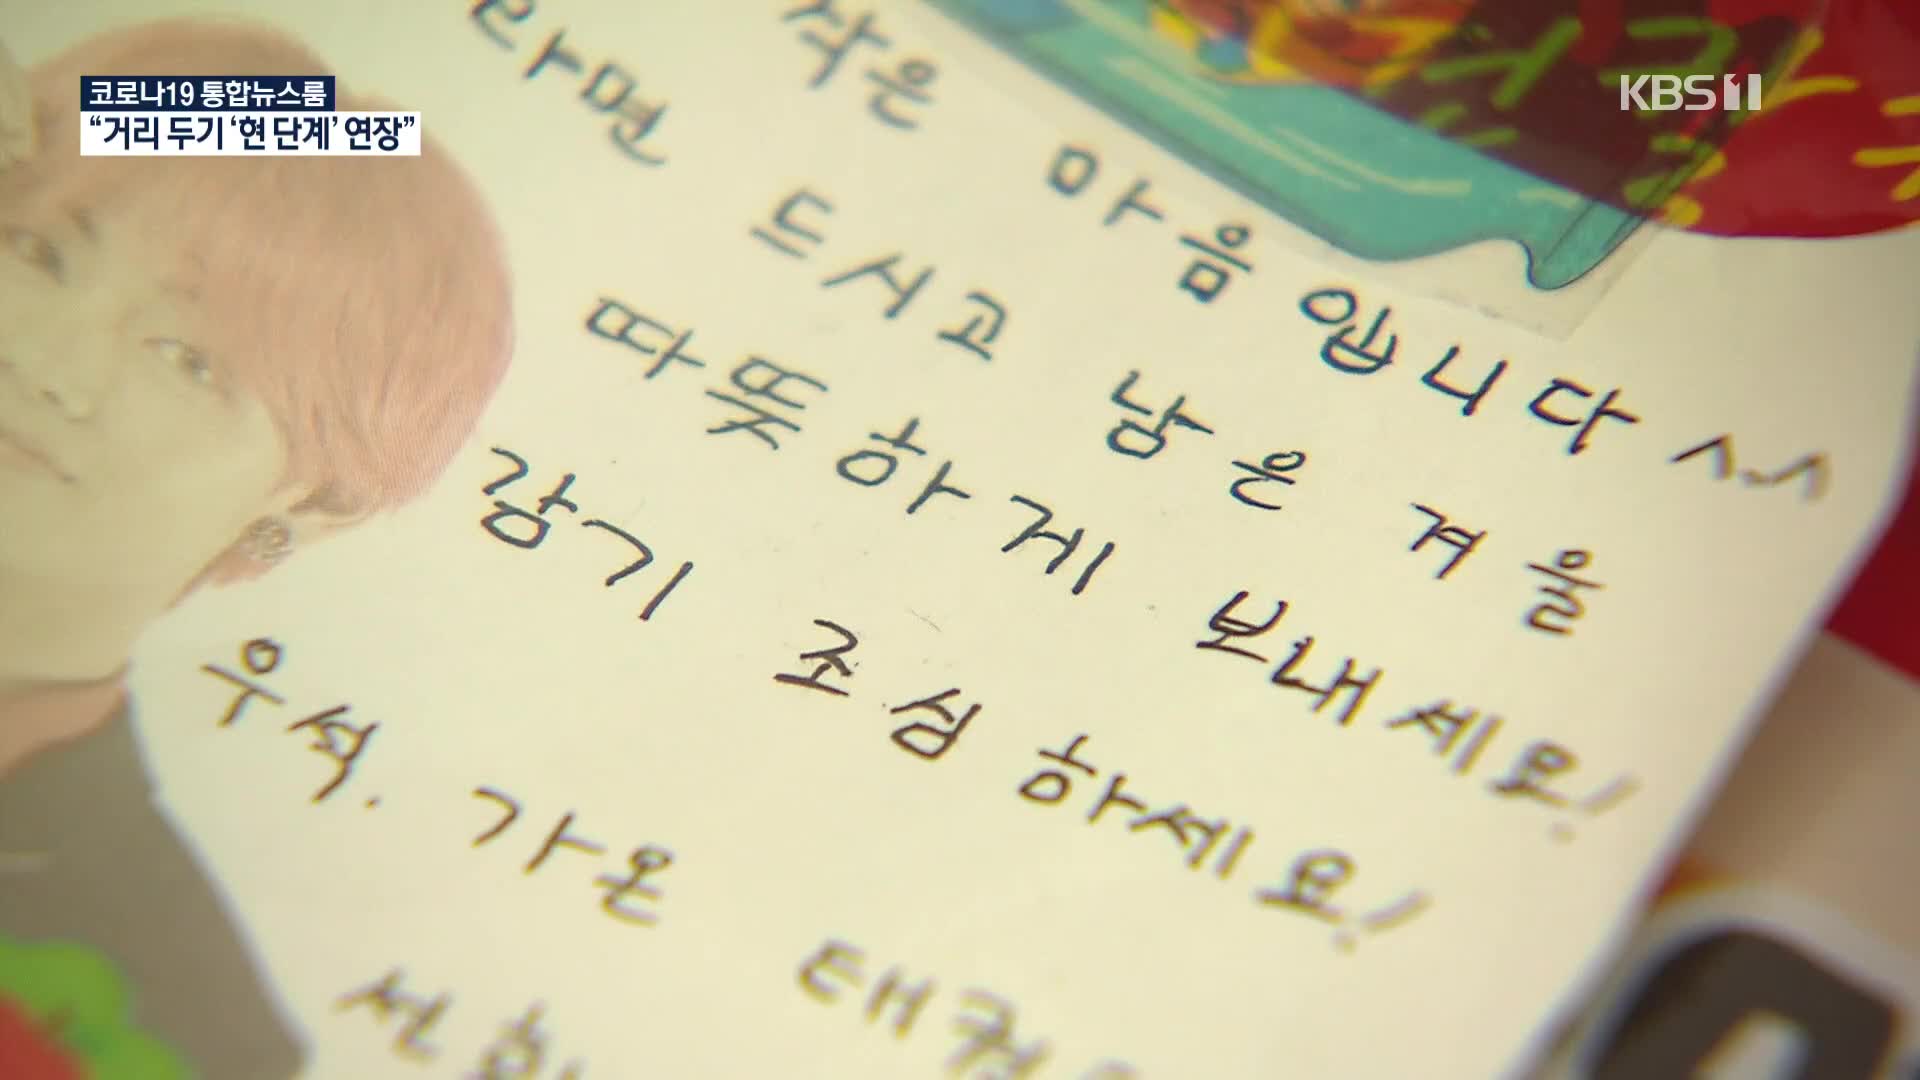 코로나19 통합뉴스룸
“거리 두기 ‘현 단계’ 연장”
KBS 1
작은 마음입니다 ^-^
라면 드시고 남은 겨울
따뜻하게 보내세요!
감기 조심하세요!
우석. 가온 태형
선